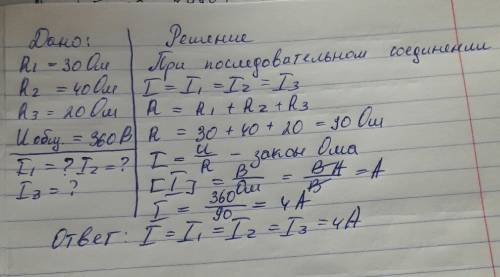 Дано:
R1 = 30 Ом
R2 = 40 Ом
R3 = 20 Ом
Uобщ = 360В
I1 = ? I2 = ?
I3 = ?
Решение
При последовательном соединении
I = I1 = I2 = I3
R = R1 + R2 + R3
R = 30 + 40 + 20 = 90 Ом
I = U/R - закон Ома
[I] = В/Ом = ВА/В = А
I = 360/90 = 4А
Ответ: I = I1 = I2 = I3 = 4А